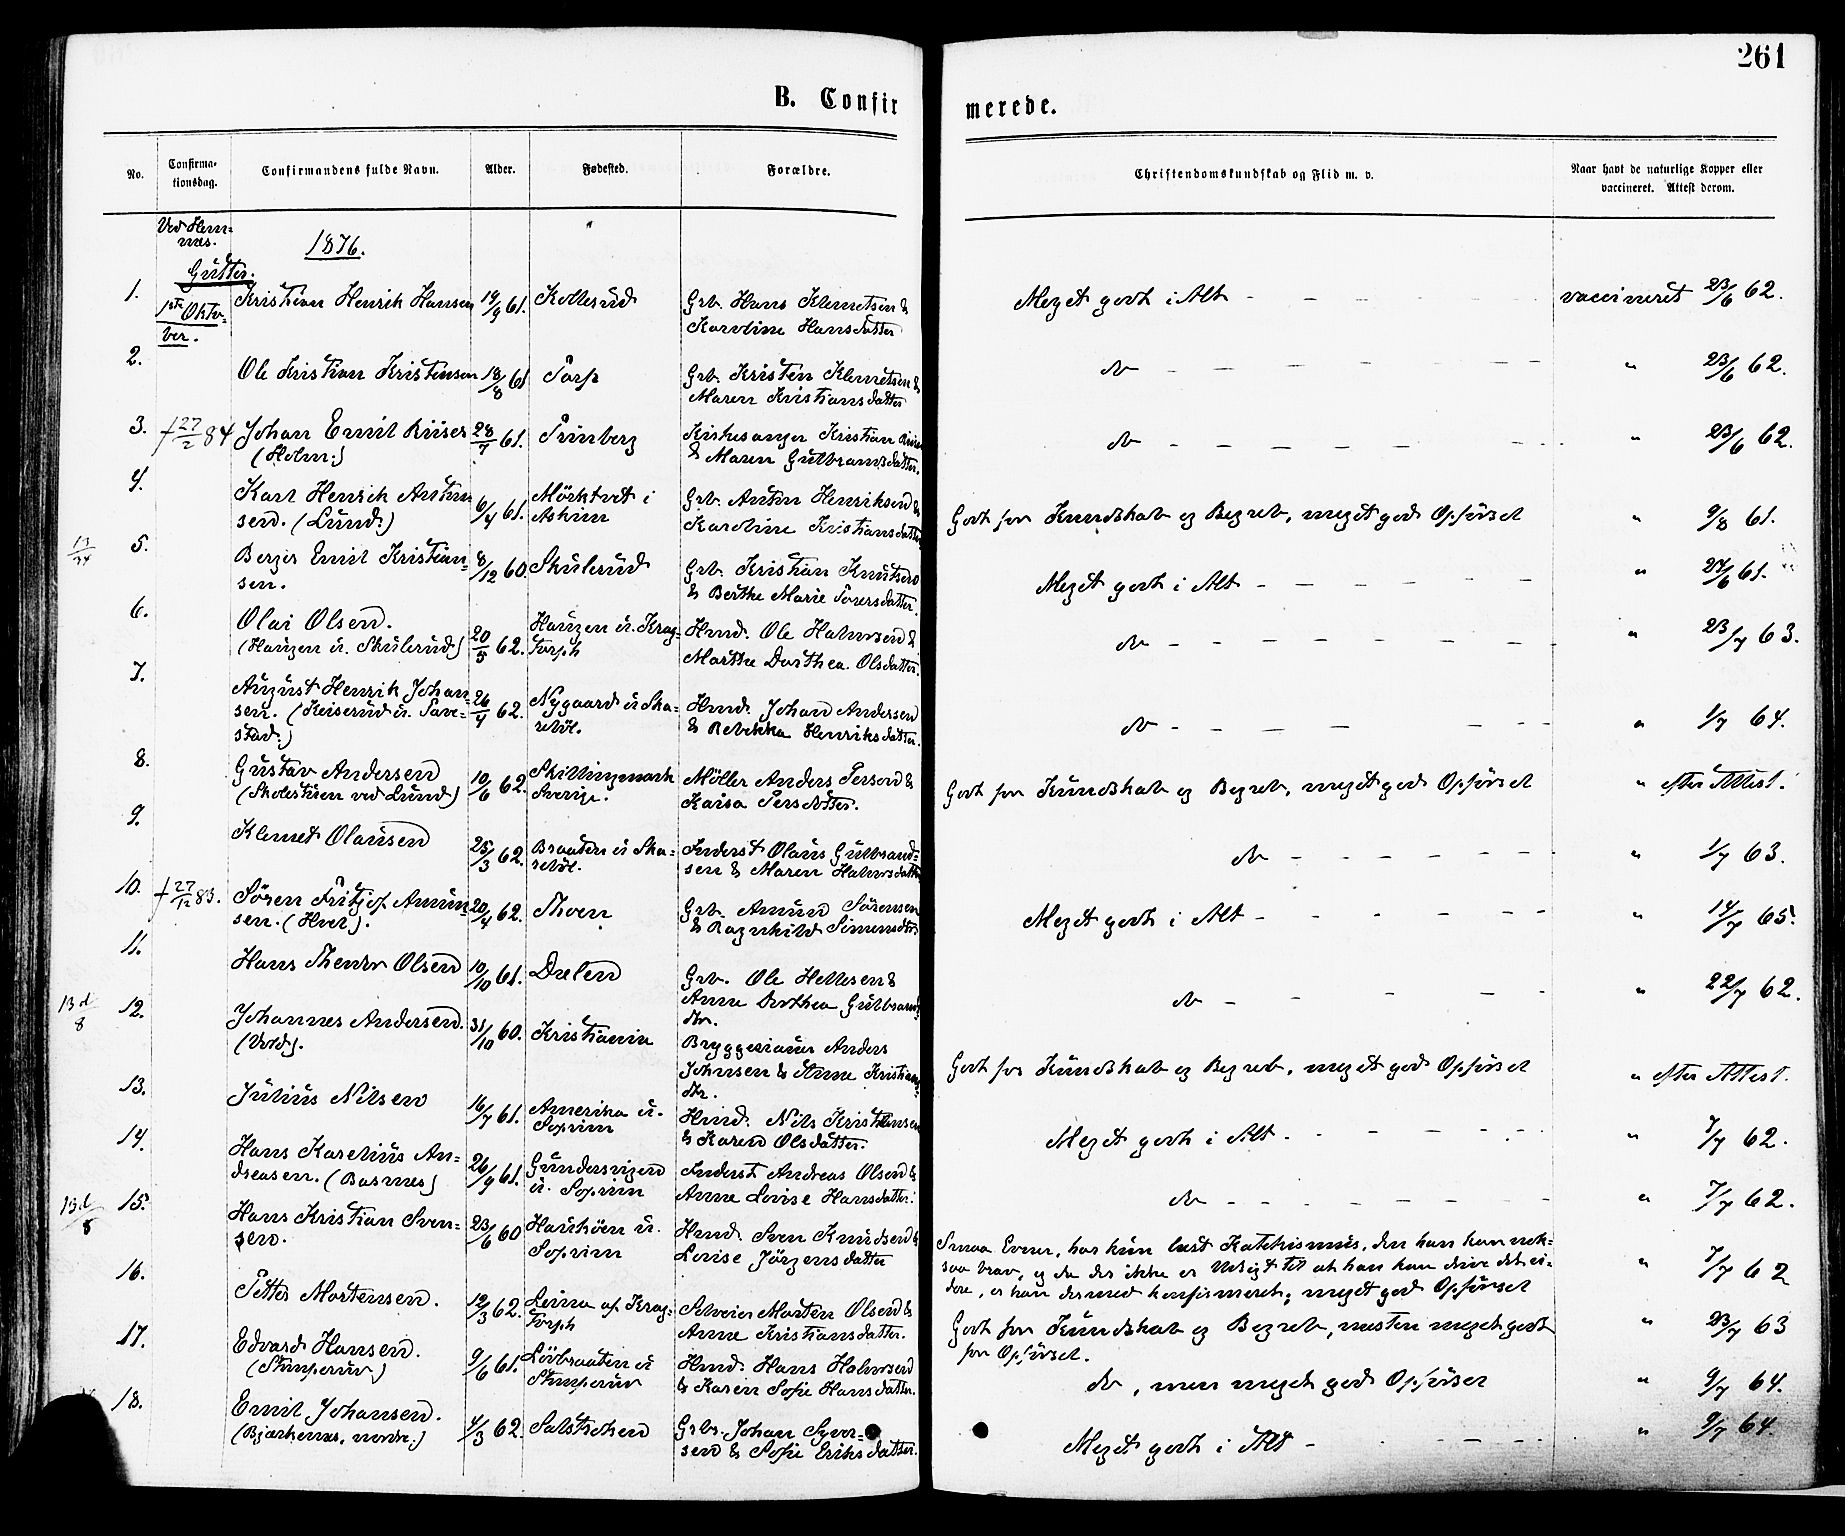 261
B. Confirmerede.
No. Confirmationsdag. Confirmandens fulde Navn. Alder. Fødested. Forældre. Christendomskundskab og Flid m. v. Naar havt de naturlige Kopper eller vaccineret. Attest derom.
Ved Hem-
nes.
1876.
Gutter.
1. 1ste Okto-
ber.
Kristian Henrik Hansen 19/9 61. Kollerud Grb. Hans Klemetsen &
Karoline Hansdatter
Meget godt i Alt - - - vaccineret 23/6 62.
2. Ole Kristian Kristensen 18/8 61 Torp Grb. Kristen Klemetsen &
Maren Kristiansdatter
do - - - " 23/6 62.
3. † 27/2 84 Johan Emil Riiser 28/7 61. Kirkesanger Kristian Riiser
(Holm:) & Maren Gulbransdatter.
do - - - " 23/6 62.
4. Karl Henrik Anton
sen. (Lund:) 6/4 61. Mörktvet i
Askim
Grb. Anton Henriksen &
Karoline Kristiansdatter
Godt for Kundskab og Begreb, meget god Opførsel " 9/8 61.
5. Berger Emil Kristian-
sen. 8/12 60. Skulerud Grb. Kristian Knutsen
& Berthe Marie Iversdatter.
Meget godt i Alt - - - " 24/6 61.
6. Olai Olsen.
(Haugen u. Skulerud) 20/5 62. Haugen u. Krag-
torph
Hmd. Ole Halvorsen &
Marthe Dorthea Olsdatter.
do - - - " 23/7 63.
7. August Henrik Johan-
sen. (Keiserud u. Tave-
stad:) 26/4 62. Nygaard u Ska-
reböl.
Hmd. Johan Andersen
& Rebekka Henriksdatter.
do - - - " 1/7 64.
8. Gustav Andersen
(Skolestuen ved Lund) 10/6 62. Skillingmark
Sverige.
Möller Anders Person &
Kaisa Persdotter.
Godt for Kundskab og Begreb, meget god Opførsel " efter Attest.
9. Klemet Olausen 25/3 62. Braaten u Ska-
reböl.
Inderst Olaus Gulbrand-
sen & Maren Halvorsdatter
do - - - " 1/7 63.
10. † 27/12 83. Sören Fritjof Amun-
sen. (Hvel). 20/4 62. Thoen Grb. Amund Sörensen
& Ragnhild Simensdtr
Meget godt i Alt - - - " 14/7 65.
11. Hans Theodor Olsen 10/10 61. Grb. Ole Hellesen &
Anne Dorthea Gulbrands
dtr.
do - - - " 22/7 62.
12. Johannes Andersen.
(Vold). 31/10 60. Kristiania Bryggeriauer Anders
Johnsen & Anne Kristians
dtr.
Godt for Kundskab og Begreb, meget god Opførsel " efter Attest.
13. Julius Nilsen 16/7 61. Amerika u.
Soprim
Hmd. Nils Kristiansen
& Karen Olsdatter.
Meget godt i Alt - - - " 7/7 62.
14. Hans Karelius An-
dreasen. (Basmes) 26/9 61. Gundersvigen
u. Soprim
Inderst Andreas Olsen &
Anne Lovise Hansdatter.
do - - - " 7/7 62.
15. Hans Kristian Sven-
sen. 23/6 60 Hauköen u.
Soprim
Hmd. Sven Knudsen &
Lovise Jörgensdatter
Smaa Evner, har kun læst Katekismus, den han kan nok-
saa brav, og da der ikke er Udsigt til at han kan drive det vi-
dere, er han dermed konfirmeret; meget god Opførsel " 7/7 62
16. Petter Mortensen. 12/3 62. Leina af Krag-
torph
Selveier Morten Olsen &
Anne Kristiansdatter.
Godt for Kundskab og Begreb, næsten meget godt
for Opførsel. " 23/7 63
17. Edvard Hansen.
(Stumperud) 9/6 61. Lövbraaten u
Stumperud
Hmd. Hans Halvorsen
& Karen Sofie Hansdatter.
do, men meget god Opførsel " 9/7 64.
18. Emil Johansen.
(Bjærkenæs, nordre.) 4/3 62. Grbr. Johan Syver-
sen & Sofie Eriksdatter.
Meget godt i Alt - - - " 9/7 64.